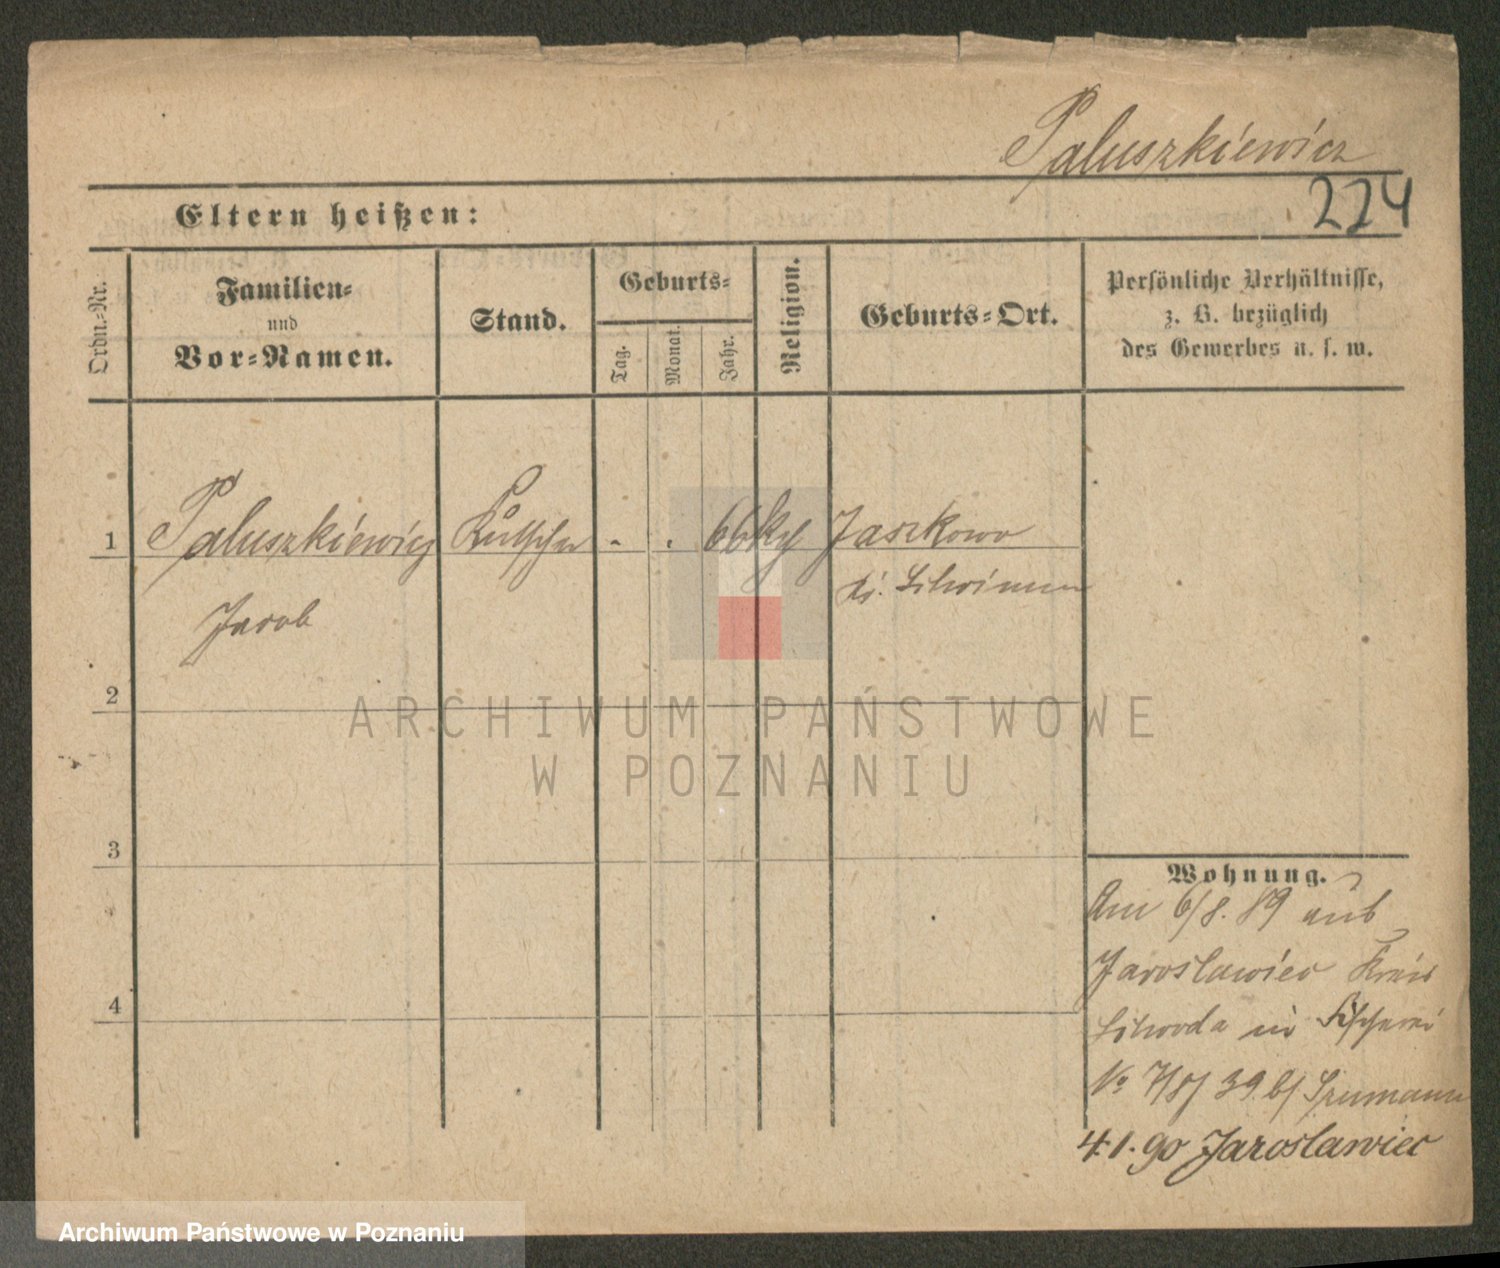 Paluszkiewicz
224
Eltern heißen:
Ordn.-Nr.
Familien-
und
Vor-Namen.
Stand.
Geburts-
Tag.
Monat.
Jahr.
Religion.
Geburts-Ort.
Persönliche Verhältnisse,
z. B. bezüglich
des Gewerbes u. s. w.
1 Paluszkiewicz Kutscher - . 66 kth Jaszkowo
Jacob
Kr. Schrimm
2
3
4
Wohnung.
Am 6/8. 89 aus
Jaroslawiec Kreis
Schroda in Fischerei
No 7/8/ 39. b/ Szumann
4.1.90 Jaroslawiec
ARCHIWUM PAŃSTWOWE
W POZNANIU
Archiwum Państwowe w Poznaniu